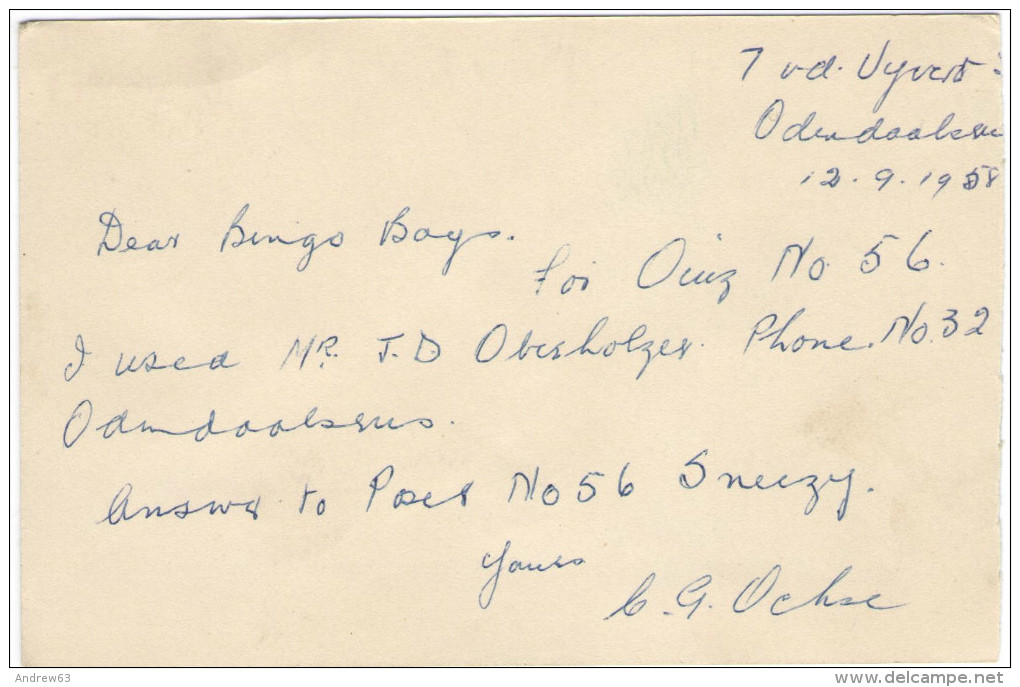 7 v.d. Vyver
Odendaalsru
12.9.1958
Dear Bingo Boys.
For Quiz No 56.
I used Mr. J.D Oberholzer. Phone. No.32
Odendaalsrus.
Answer to Poser No 56 Sneezy.
Yours
C.G. Ochse
Andrew63
www.delcampe.net